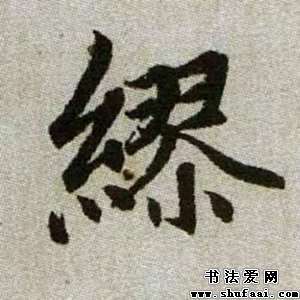 繆
书法爱网
www.shufaai.com